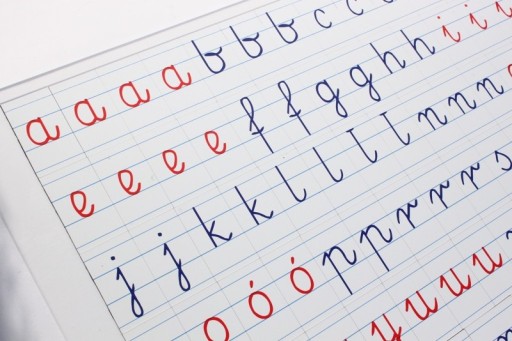 a a a a b b b c c
e e e e f f g g h h i i i
j j k k l l l l n n n
o ó ó p p r r r s
y u u u